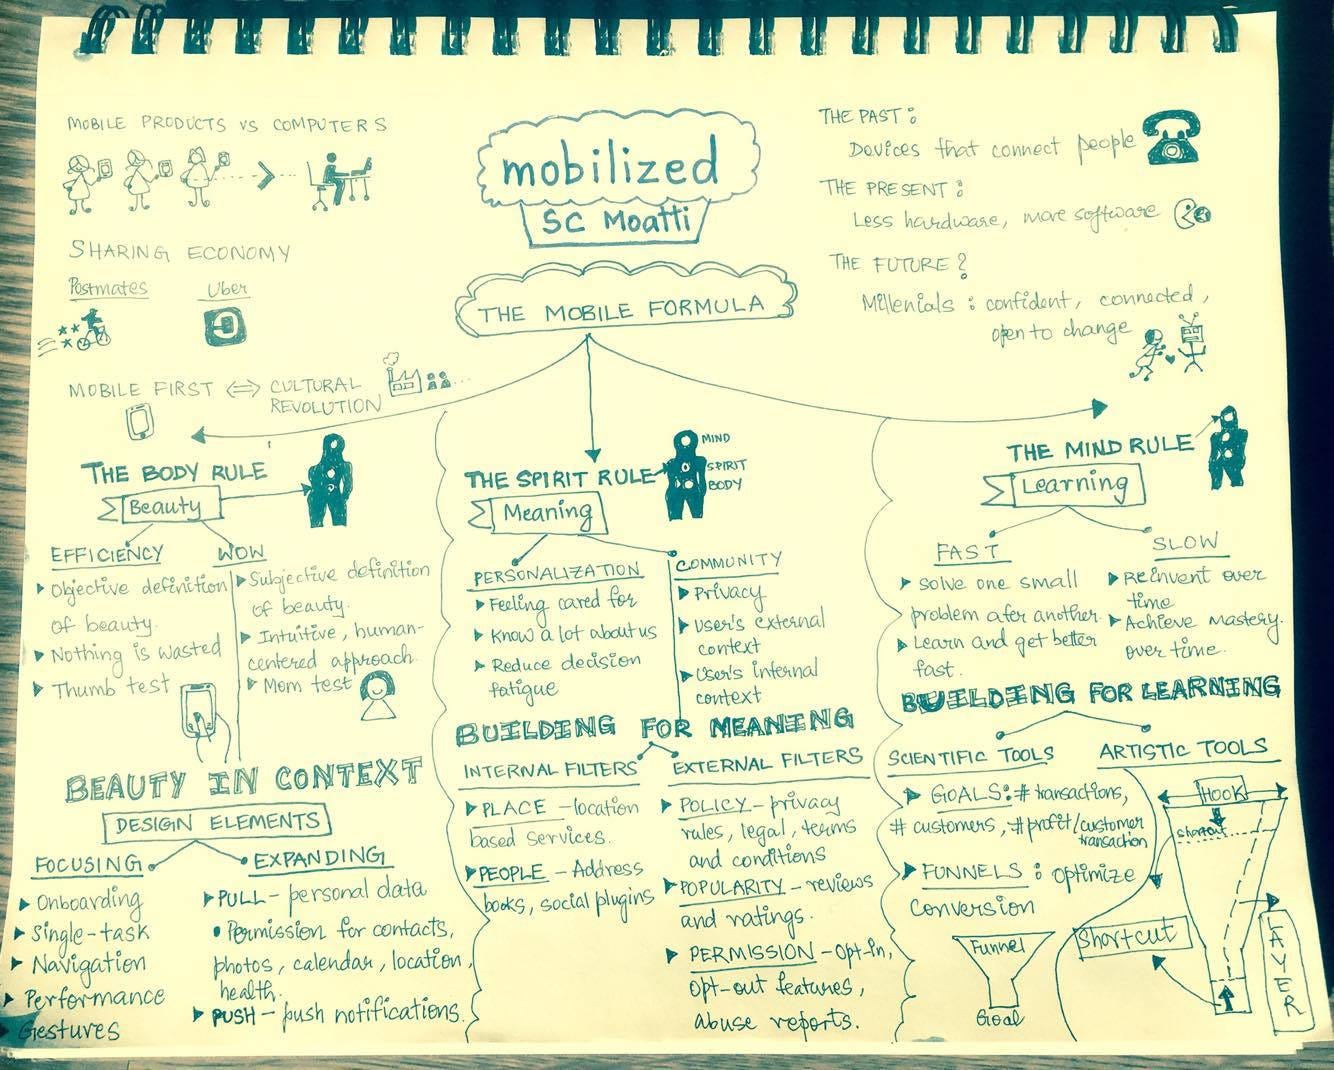 MOBILE PRODUCTS VS COMPUTERS
SHARING ECONOMY
Postmates
Uber
MOBILE FIRST ⇔ CULTURAL
REVOLUTION
mobilized
SC Moatti
THE MOBILE FORMULA
THE PAST:
Devices that connect people
THE PRESENT:
Less hardware, more software
THE FUTURE?
Millenials: confident, connected,
open to change
THE BODY RULE
Beauty
EFFICIENCY
Objective definition
of beauty.
Nothing is wasted
Thumb test
WOW
Subjective definition
of beauty.
Intuitive, human-
centered approach.
Mom test
BEAUTY IN CONTEXT
DESIGN ELEMENTS
FOCUSING
Onboarding
Single-task
Navigation
Performance
Gestures
EXPANDING
PULL - personal data
• Permission for contacts,
photos, calendar, location,
health.
PUSH - push notifications.
THE SPIRIT RULE
MIND
SPIRIT
BODY
Meaning
PERSONALIZATION
Feeling cared for
Know a lot about us
Reduce decision
fatigue
COMMUNITY
Privacy
User's external
context
User's internal
context
BUILDING FOR MEANING
INTERNAL FILTERS
PLACE - location
based services.
PEOPLE - Address
books, social plugins
EXTERNAL FILTERS
POLICY - privacy
rules, legal, terms
and conditions
POPULARITY - reviews
and ratings.
PERMISSION - Opt-in,
opt-out features,
abuse reports.
THE MIND RULE
Learning
FAST
Solve one small
problem afer another.
Learn and get better
fast.
SLOW
Reinvent over
time
Achieve mastery.
over time.
BUILDING FOR LEARNING
SCIENTIFIC TOOLS
GOALS: # transactions,
# customers, # profit/customer
transaction
FUNNELS: optimize
conversion
Funnel
Goal
ARTISTIC TOOLS
HOOK
shortcut
Shortcut
LAYER